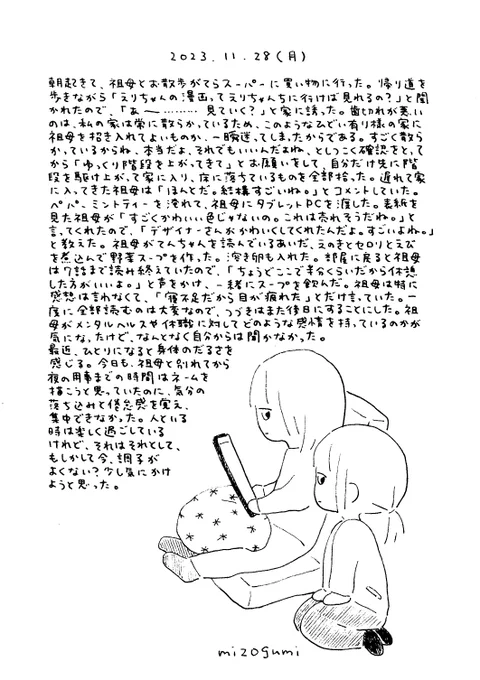 2023.11.28(月)
朝起きて、祖母とお散歩がてらスーパーに買い物に行った。帰り道を
歩きながら「えりちゃんの漫画ってえりちゃんちに行けば見れるの?」と聞
かれたので、「あー……… 見ていく?」と家に誘った。歯切れが悪い
のは、私の家は常に散らかっているため、このようなひどい有り様の家に
祖母を招き入れてよいものか、一瞬迷ってしまったからである。すごく散ら
かっているからね、本当だよ、それでもいいんだよね、としつこく確認をとって
から「ゆっくり階段を上がってきて」とお願いをして、自分だけ先に階
段を駆け上がって家に入り、床に落ちているものを全部拾った。遅れて家
に入ってきた祖母は「ほんとだ。結構すごいね。」とコメントしていた。
ペパーミントティーを淹れて、祖母にタブレットPCを渡した。表紙を
見た祖母が「すごくかわいい色じゃないの。これは売れそうだね。」と
言ってくれたので、「デザイナーさんがかわいくしてくれたんだよ。すごいよね。」
と教えた。祖母がてんちゃんを読んでいるあいだ、えのきとセロリとえび
を煮込んで野菜スープを作った。溶き卵も入れた。部屋に戻ると祖母
は7話まで読み終えていたので、「ちょうどここで半分くらいだから休憩
した方がいいよ。」と声をかけ、一緒にスープを飲んだ。祖母は特に
感想は言わなくて、「寝不足だから目が疲れた」とだけ言っていた。一
度に全部読むのは大変なので、つづきはまた後日にすることにした。祖
母がメンタルヘルスや休職に対してどのような感情を持っているのかが
気になったけど、なんとなく自分からは聞かなかった。
最近、ひとりになると身体のだるさを
感じる。今日も、祖母と別れてから
夜の用事までの時間はネームを
描こうと思っていたのに、気分の
落ち込みと倦怠感を覚え、
集中できなかった。人といる
時は楽しく過ごしている
けれど、それはそれとして、
もしかして今、調子が
よくない?少し気にかけ
ようと思った。
mizogumi